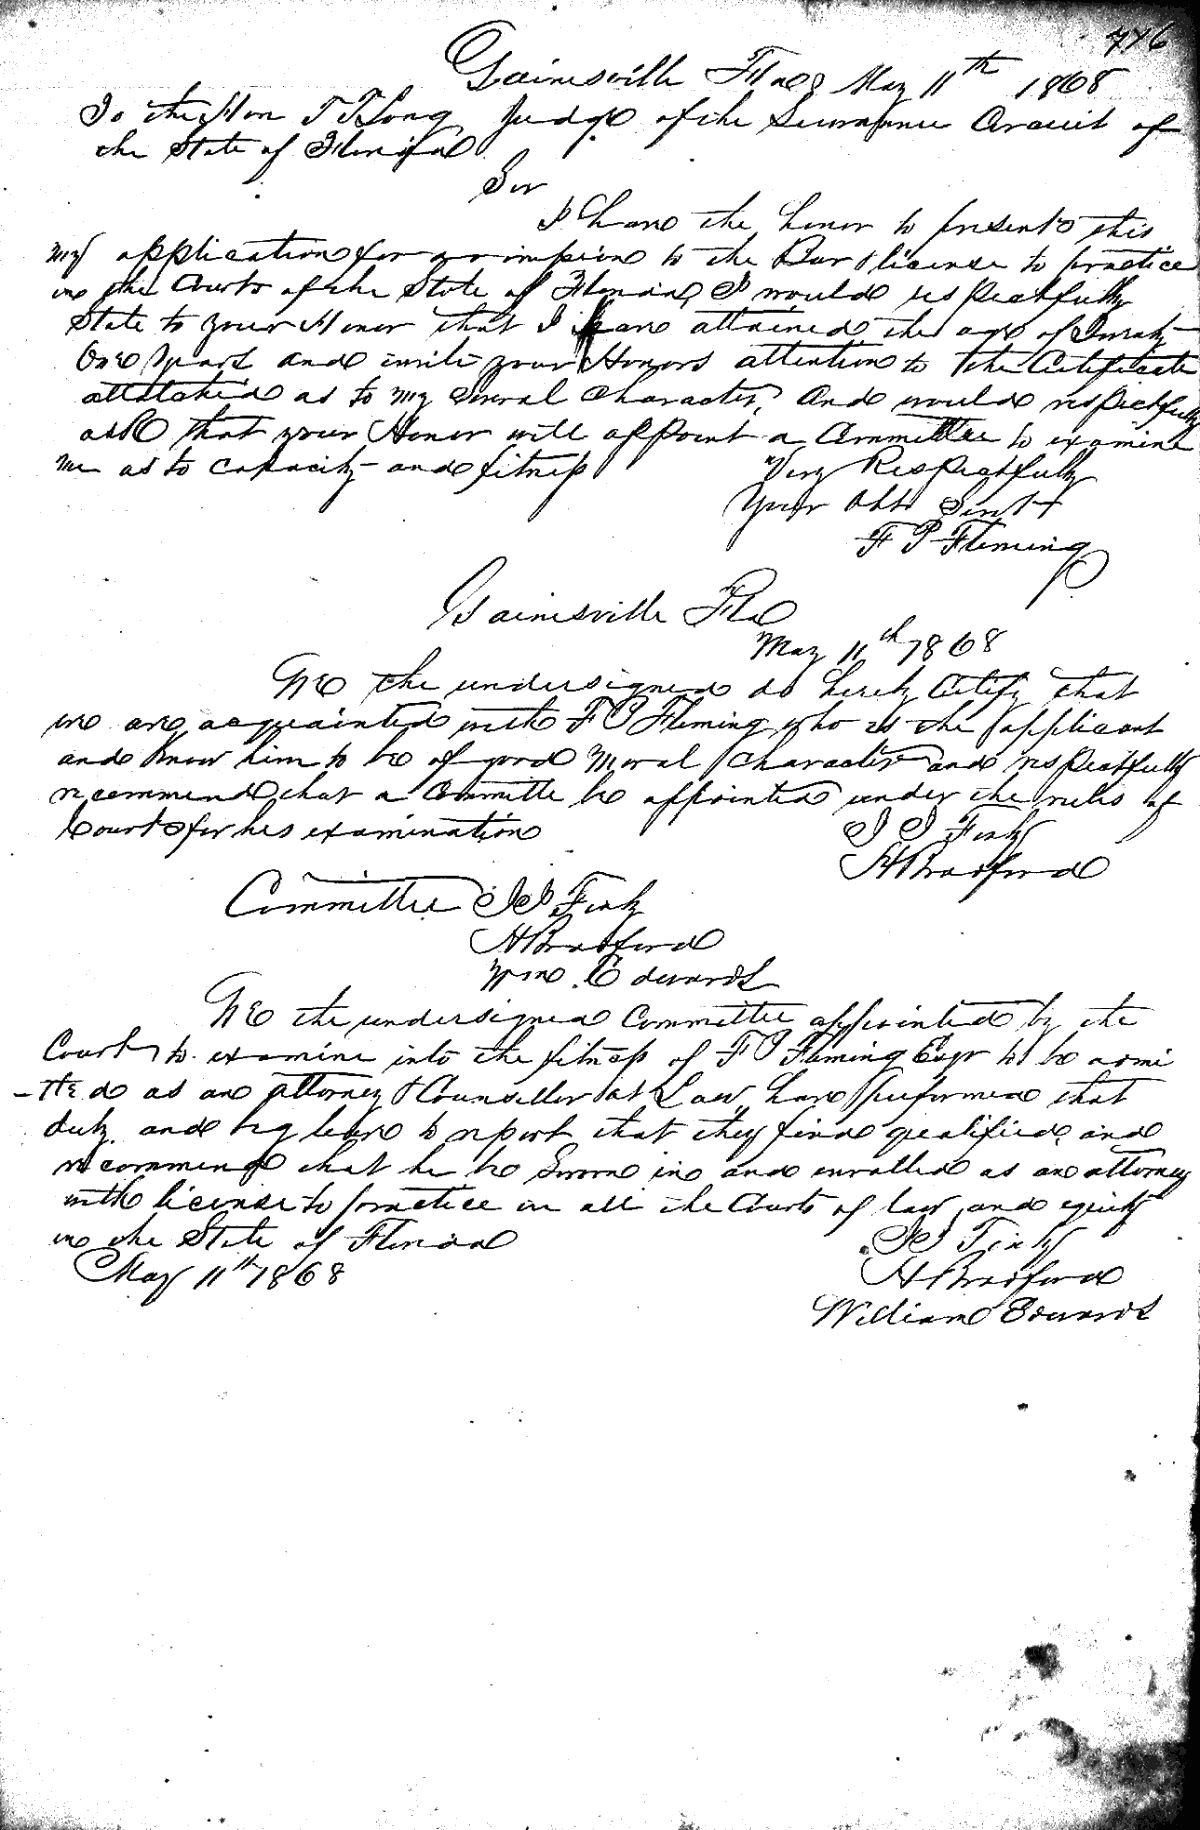 776
Gainesville Fla May 11th 1868
To the Hon T T Long Judge of the Suwannee Circuit of
the State of Florida
Sir
I have the honor to present this
my application for admission to the Bar & license to practice
in the Courts of the State of Florida, I would respectfully
State to your Honor that I have attained the age of Twenty
One years and invite your Honors attention to the Certificate
attatched as to my Moral Character, And would respectfully
ask that your Honor will appoint a Committee to examine
me as to capacity and fitness
Very Respectfully
Your Obt Servt
F P Fleming
Gainesville Fla
May 11th 1868
We the undersigned do hereby Certify that
we are acquainted with F P Fleming who is the applicant
and know him to be of good Moral Character and respectfully
recommend that a Committe be appointed under the rules of
Court for his examination
J J Finley
H Bradford
Committee J J Finley
H Bradford
Wm. Edwards
We the undersigned Committee appointed by the
Court to examine into the fitness of F P Fleming Esqr to be admi
-tted as an attorney & Counseller at Law, have performed that
duty and beg leave to report that they find qualified and
recommend that he be Sworn in and enrolled as an attorney
with license to practice in all the Courts of law and equity
in the State of Florida
J J Finley
May 11th 1868
H Bradford
William Edwards